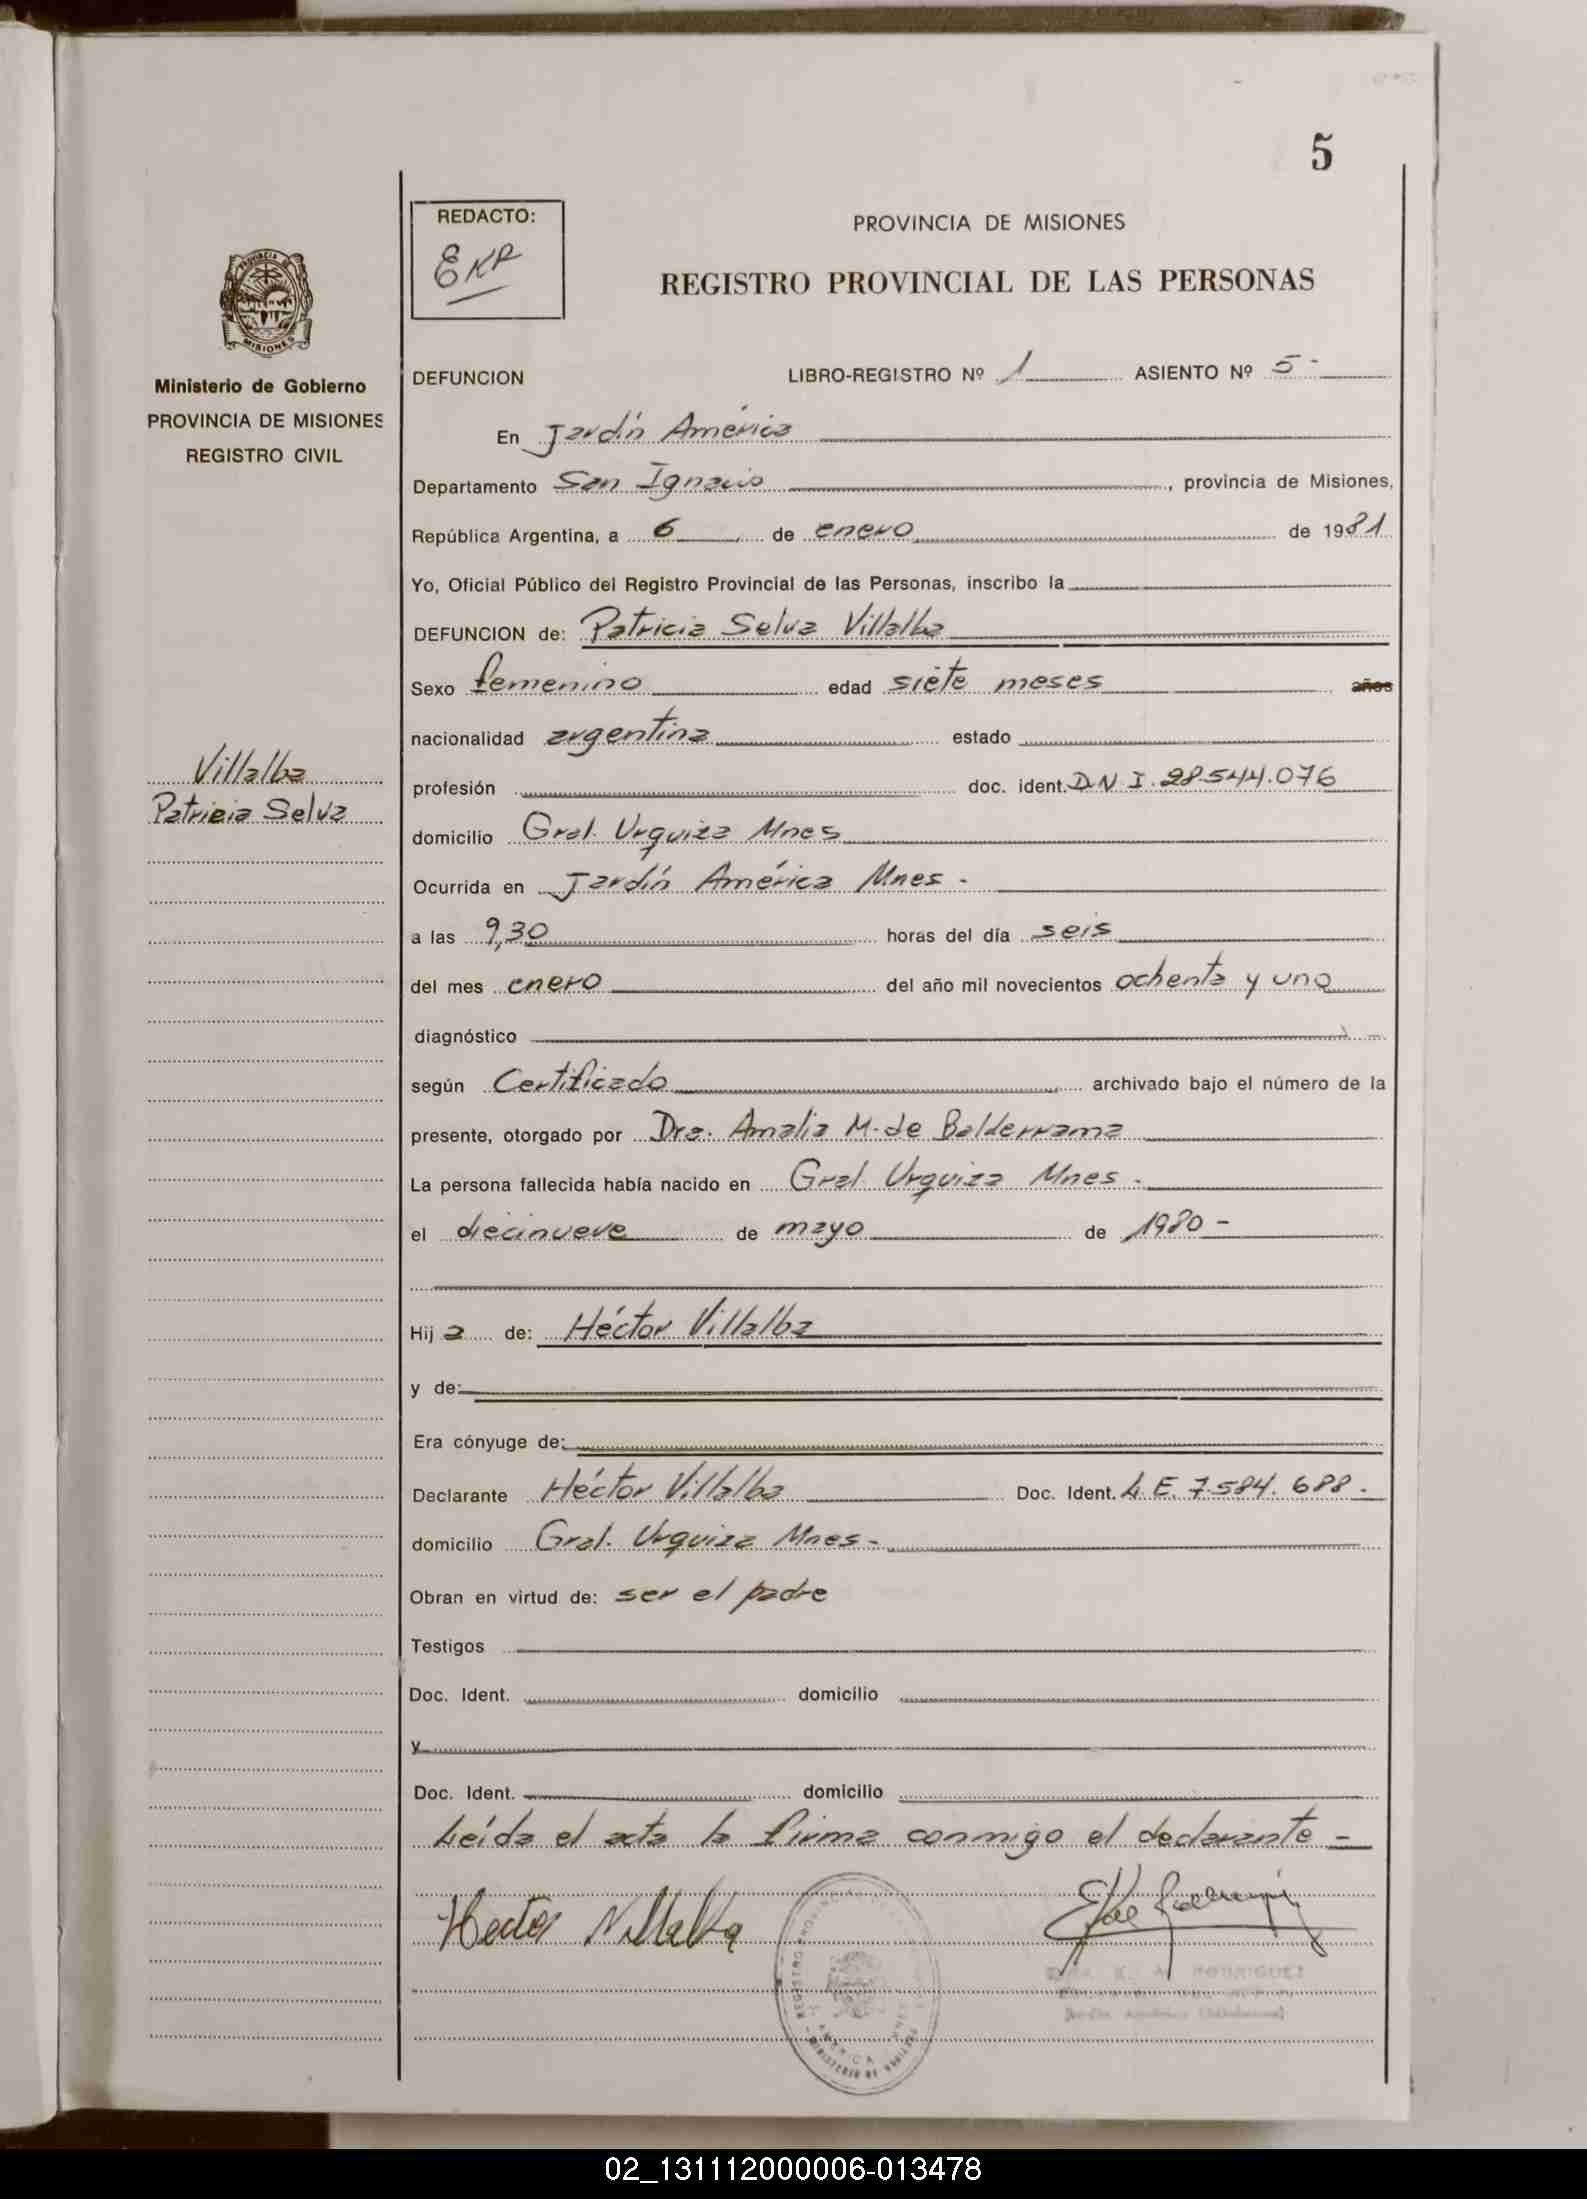 5
REDACTO:
EKR
PROVINCIA DE MISIONES
REGISTRO PROVINCIAL DE LAS PERSONAS
MISIONES
Ministerio de Gobierno
PROVINCIA DE MISIONES
REGISTRO CIVIL
DEFUNCION LIBRO-REGISTRO Nº 1 ASIENTO Nº 5-
En Jardín América
Departamento San Ignacio, provincia de Misiones,
República Argentina, a 6 de enero de 1981
Yo, Oficial Público del Registro Provincial de las Personas, inscribo la
DEFUNCION de: Patricia Selva Villalba
Sexo femenino edad siete meses años
nacionalidad argentina estado
Villalba
Patricia Selva
profesión doc. ident. D.N.I. 28.544.076
domicilio Gral. Urquiza Mnes
Ocurrida en Jardín América Mnes -
a las 9,30 horas del día seis
del mes enero del año mil novecientos ochenta y uno
diagnóstico
según Certificado archivado bajo el número de la
presente, otorgado por Dra. Amalia M. de Balderrama
La persona fallecida había nacido en Gral Urquiza Mnes.
el diecinueve de mayo de 1980-
Hij a de: Héctor Villalba
y de:
Era cónyuge de:
Declarante Héctor Villalba Doc. Ident. L.E. 7.584.688.
domicilio Gral. Urquiza Mnes-
Obran en virtud de: ser el padre
Testigos
Doc. Ident. domicilio
y
Doc. Ident. domicilio
Leída el acta la firma conmigo el declarante -
Hector Villalba
RODRIGUEZ
02_131112000006-013478